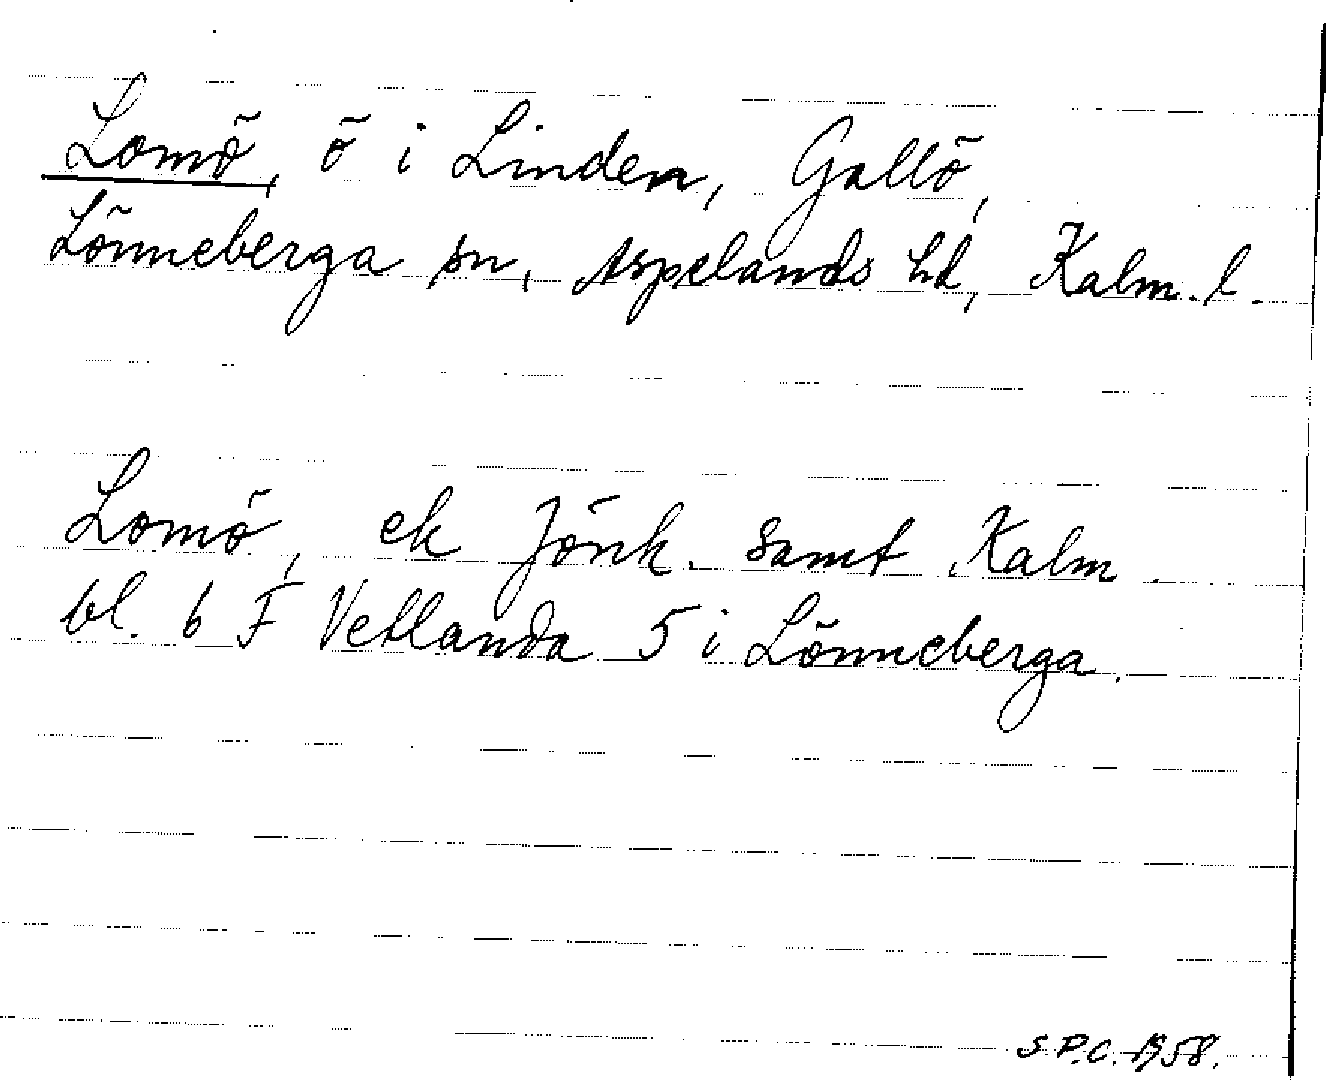 Lomö, ö i Linden, Gallö,
Lönneberga sn, Aspelands hd, Kalm. l.
Lomö, ek Jönk. samt Kalm.
bl. 6 F Vetlanda 5 i Lönneberga.
S.P.C. 1958.